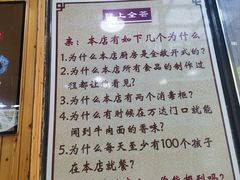 上全荟
亲：本店有如下几个为什么
1.为什么本店厨房是全敞开式的？
2.为什么本店所有食品的制作过
程都让您看见？
3.为什么本店有两个消毒柜？
4.为什么有时候在万达门口就能
闻到牛肉面的香味？
5.为什么每天至少有100个孩子
在本店就餐？